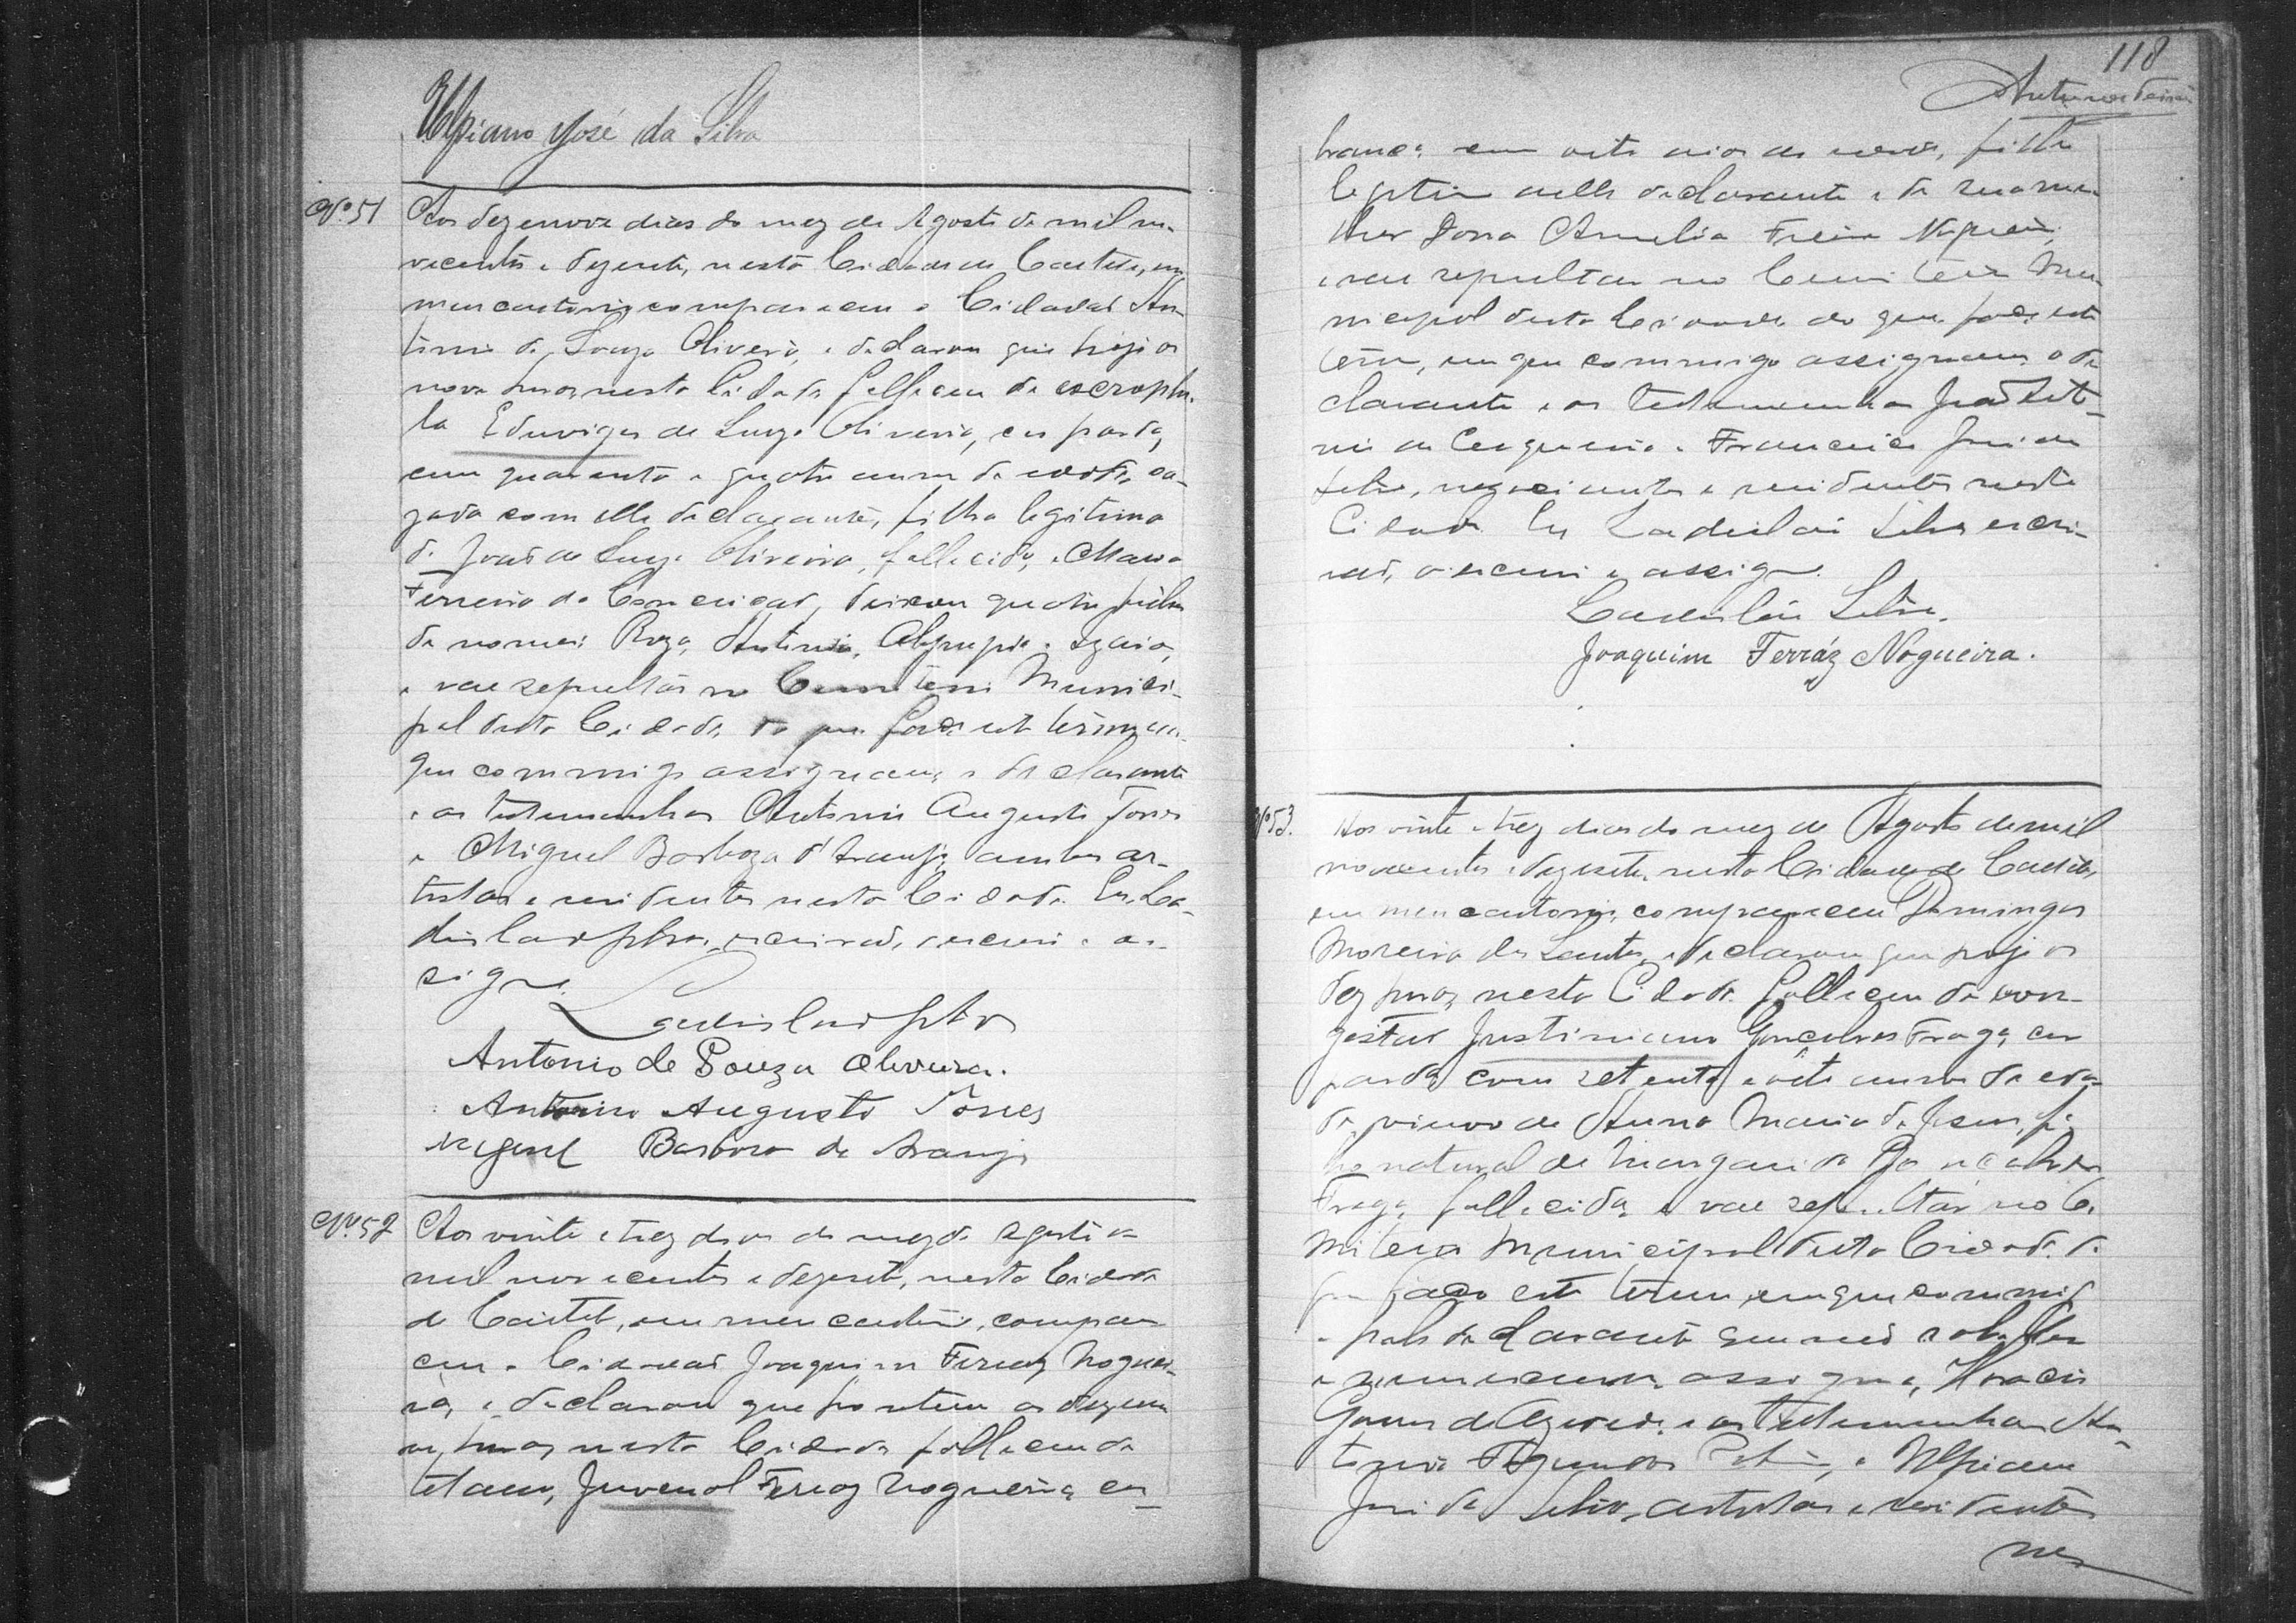 Ulpiano José da Silva
Nº 51
Aos dezenove dias do mez de Agosto de mil no-
vecentos e dezesete, nesta Cidade de Caeteté, em
meu cartorio compareceu o Cidadão An-
tonio de Souza Oliveira, e declarou que hoje as
nove horas nesta Cidade falleceu de escrophu-
la Eduviges de Souza Oliveira, cor parda,
com quarenta e quatro annos de edade, ca-
zada com elle declarante, filha legitima
de João de Souza Oliveira, fallecido, e Maria
Ferreira da Conceição, deixou quatro filhos
de nomes: Roza, Antonio, Olympia e
e vae sepultar no Cemiterio Munici-
pal desta Cidade do que faço este termo em
que commigo assignam, o declarante
e as testemunhas Antonio Augusto Torres
e Miguel Barboza d'Araujo, ambos ar-
tistas e residentes nesta Cidade. Eu, La-
dislao Silva, escrivão, escrevi e as-
signo.
Ladislao Silva
Antonio de Souza Oliveira.
Antonio Augusto Torres
Miguel Barboza de Araujo
Nº 52
Aos vinte e trez dias do mez de Agosto de
mil novecentos e dezesete, nesta Cidade
de Caeteté, em meu cartorio, compare-
ceu o Cidadão Joaquim Ferraz Noguei-
ra, e declarou que hontem as dezeno-
ve horas nesta Cidade falleceu de
tetano, Juvenal Ferraz Nogueira, cor
118
Antunes
branca com oito annos de edade, filho
legitimo delle declarante e de sua mu-
lher Dona Amelia Freire Nogueira,
e vae sepultar no Cemiterio Mu-
nicipal desta Cidade do que faço este
termo, em que commigo assignam o de-
clarante e as testemunhas João
de Cerqueira e Francisco José da
Silva, negociantes e residentes nesta
Cidade. Eu Ladislao Silva escri-
vão, o escrevi e assigno.
Ladislao Silva.
Joaquim Ferráz Nogueira.
Nº 53.
Aos vinte e trez dias do mez de Agosto de mil
novecentos e dezesete, nesta Cidade de Caeteté,
em meu cartorio, compareceu Domingos
Moreira dos Santos, e declarou que hoje as
dez horas nesta Cidade falleceu de con-
gestão Justiniano Gonçalves Fraga, cor
parda com setenta e oito annos de eda-
de, viuvo de Anna Maria de Jesus, fi-
lho natural de Margarida Gonçalves
Fraga, fallecida, e vae sepultar no Ce-
miterio Municipal desta Cidade do
que faço este termo, em que commigo
e pelo declarante que não sabe ler
e nem escrever assigna, Horacio
Gomes de Azevedo e as testemunhas An-
tonio e Ulpiano
José da Silva, artistas e residentes
nes